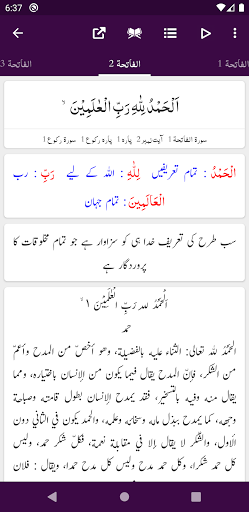 6:37
الفاتحة 3
الفاتحة 2
الفاتحة 1
اَلْحَمْدُ لِلّٰهِ رَبِّ الْعٰلَمِیْنَ ۙ
سورة الفاتحة 1 آیت نمبر 2 پارہ 1 پارہ رکوع 1 سورة رکوع 1
الْحَمْدُ : تمام تعریفیں لِلّٰہِ : اللہ کے لیے رَبِّ : رب
الْعَالَمِينَ : تمام جہان
سب طرح کی تعریف خدا ہی کو سزاوار ہے جو تمام مخلوقات کا
پروردگار ہے
اَلْحَمْدُ للہ رَبِّ الْعٰلَمِیْنَ ١ ۙ
حمد
الحَمْدُ لله تعالی: الثناء عليه بالفضيلة، وهو أخصّ من المدح وأعمّ
من الشکر، فإنّ المدح يقال فيما يكون من الإنسان باختياره، ومما
يقال منه وفيه بالتسخير، فقد يمدح الإنسان بطول قامته وصباحة
وجهه، كما يمدح ببذل ماله وسخائه وعلمه، والحمد يكون في الثاني دون
الأول، والشّكر لا يقال إلا في مقابلة نعمة، فكلّ شكر حمد، وليس
كل حمد شكرا، وكل حمد مدح وليس كل مدح حمدا، ويقال : فلان